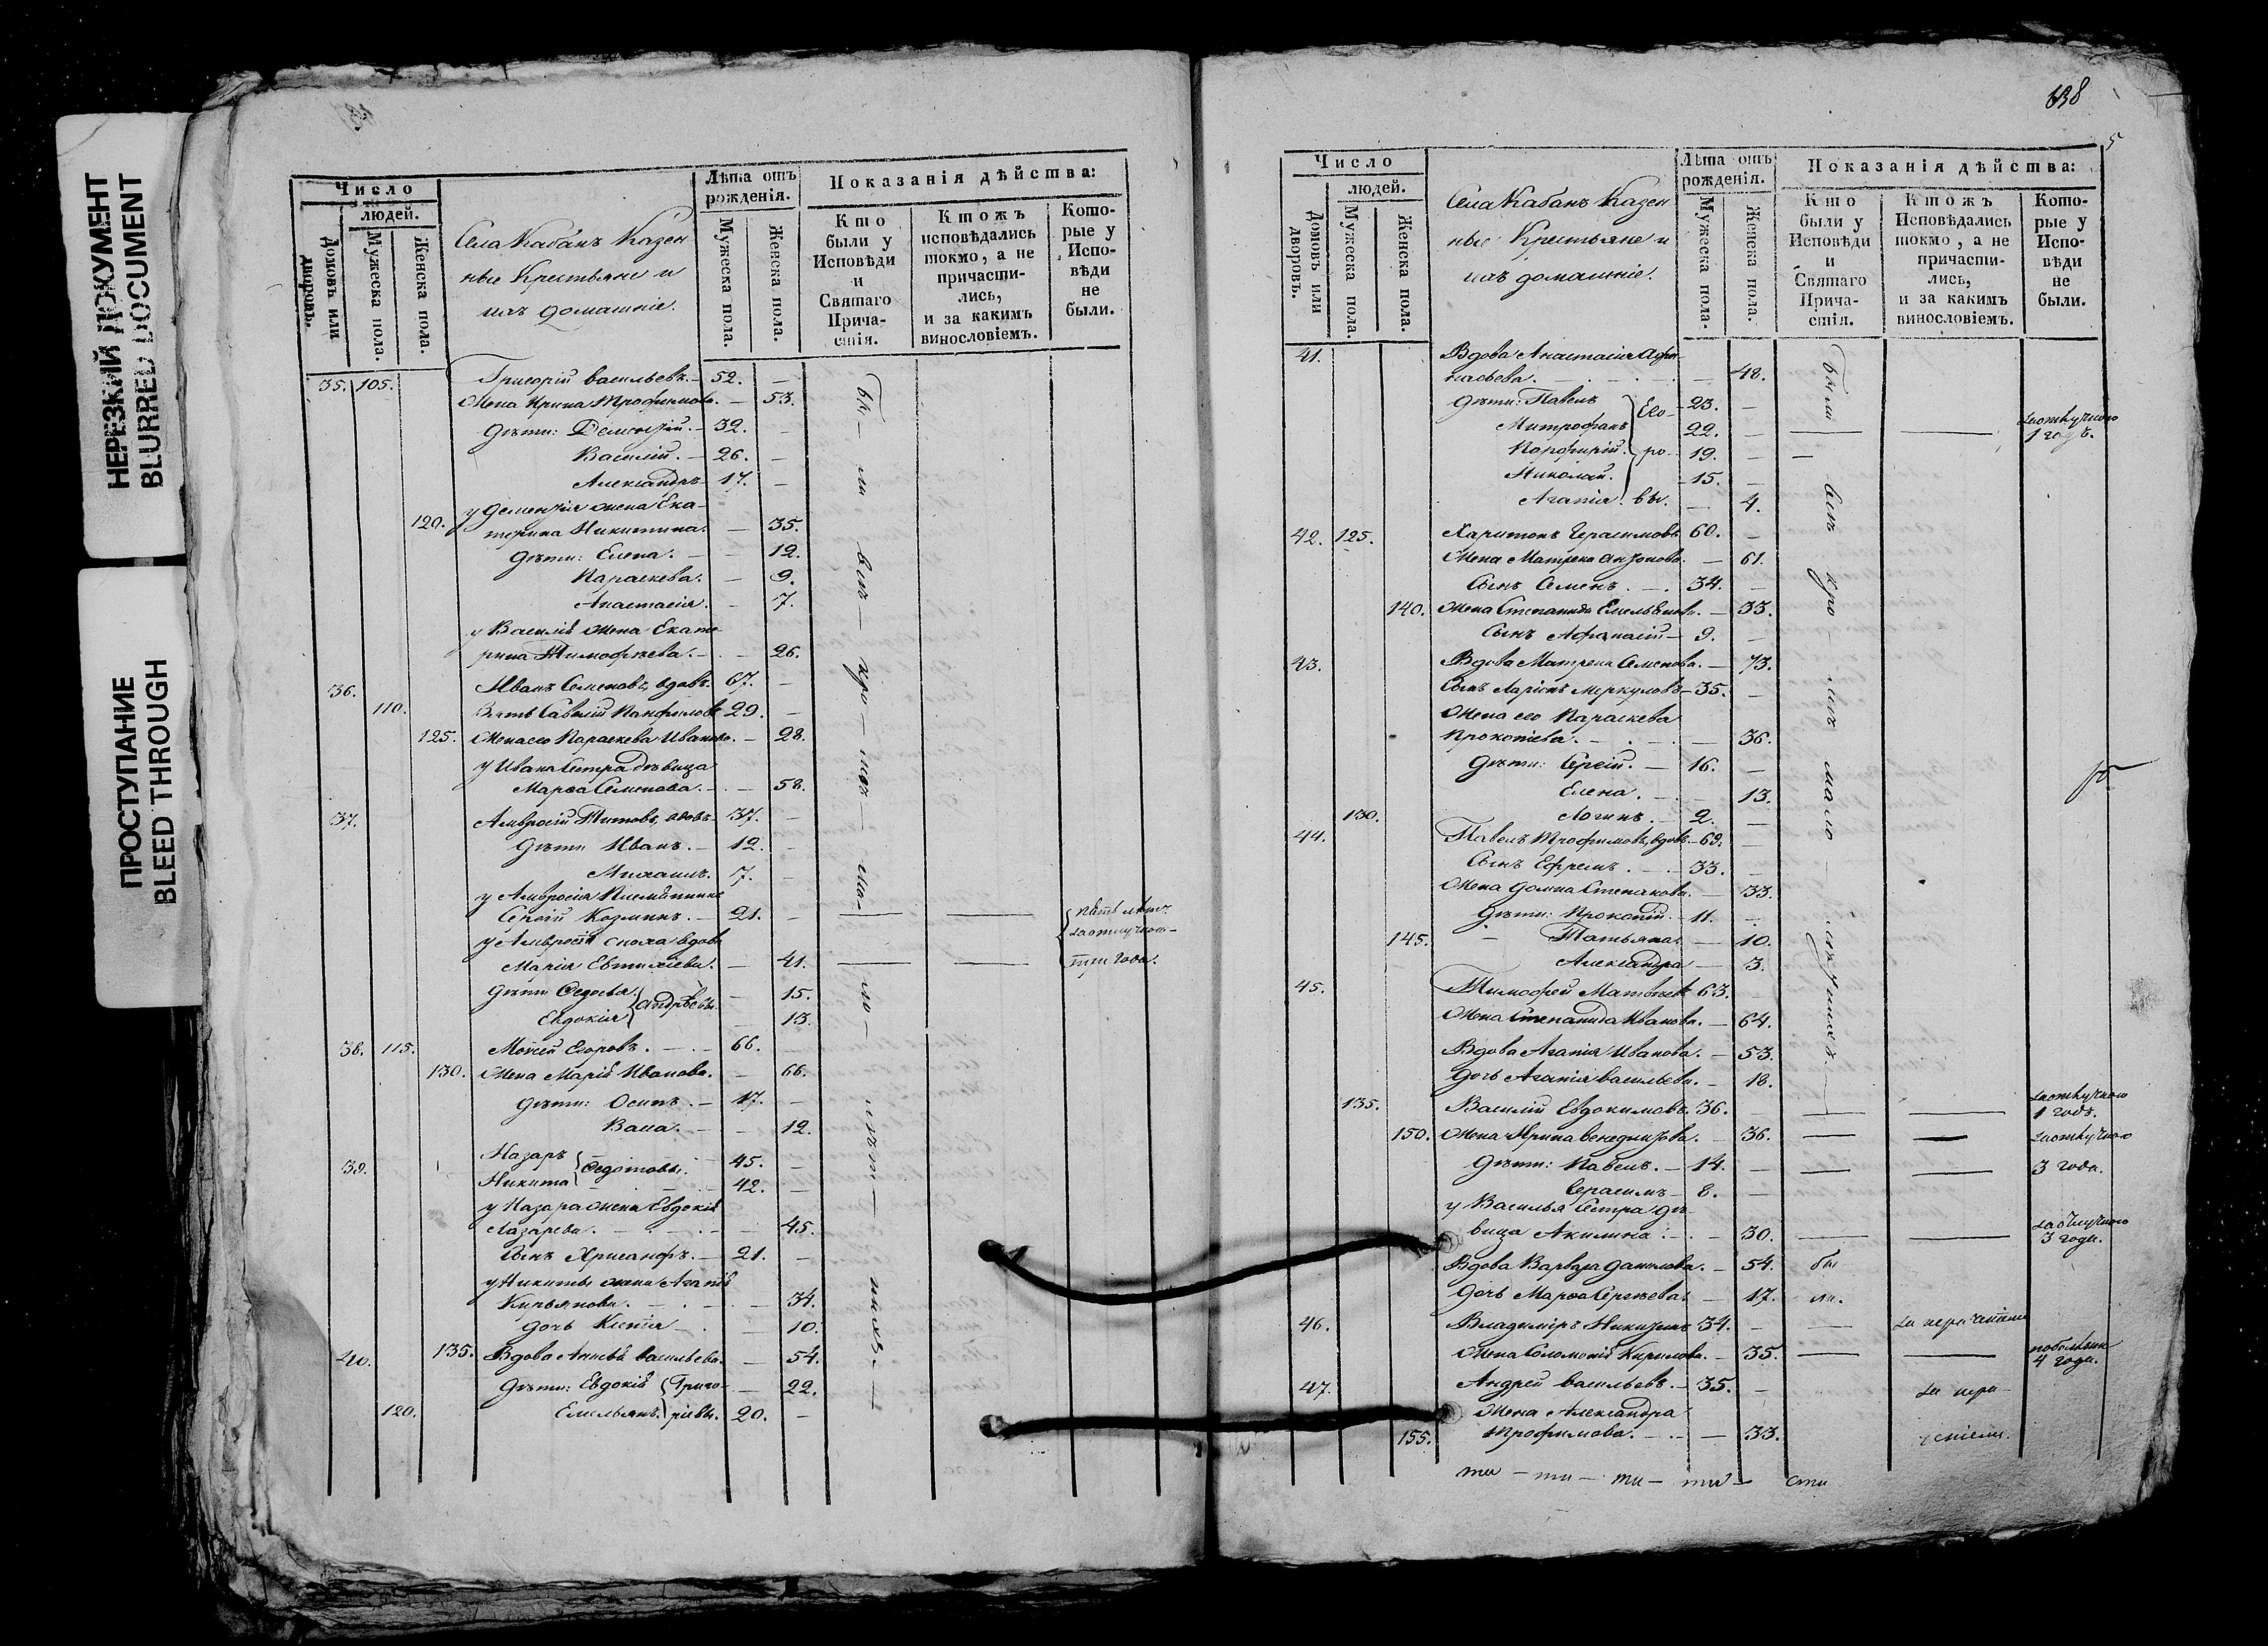 НЕРЕЗКИЙ ДОКУМЕНТ
BLURRED DOCUMENT
ПРОСТУПАНИЕ
BLEED THROUGH
Число
людей.
Домовъ или дворовъ.
Мужеска пола.
Женска пола.
Села Кабанъ Казен
ные Крестьяне и
ихъ домашніе.
Лѣта отъ рожденія.
Мужеска пола.
Женска пола.
Показанія дѣйства:
Кто были у Исповѣди и Святаго Прича-стія.
Ктожъ исповѣдались токмо, а не причасти-лись, и за какимъ винословіемъ.
Кото-рые у Испо-вѣди не были.
35. 105. Григорій Васильевъ. 52. —
Жена Ирина Трофимова. — 53.
Дѣти: Дементій. — 32. —
Василій. — 26. —
Александръ 17. —
у Дементія жена Ека-
120. терина Никитина. — 35.
Дѣти: Елена. — 12.
Параскева. — 9.
Анастасія. — 7.
у Василія жена Екате-
рина Тимофѣева. — 26.
36. Иванъ Семеновъ, вдовъ. 67. —
110. Зять Савелій Панфиловъ 29. —
125. Жена его Параскева Иванова. — 28.
у Ивана Сестра дѣвица
Марѳа Семенова. — 58.
37. Амвросій Титовъ, вдовъ — 37. —
Дѣти Иванъ. — 12. —
Михаилъ. 7. —
у Амвросія Племянникъ
Сергій Козминъ. — 21. — пять лѣтъ
у Амвросія сноха вдова за отлучкою
Марія Евтихіева. — 41. — три года.
Дѣти Ѳедосья — 15.
Евдокія Андреевы — 13.
38. 115. Моисей Егоровъ. — 66. —
130. Жена Марія Иванова. — 66.
Дѣти: Осипъ. — 17. —
Васса. — 12.
39. Назаръ Ѳедотовы. 45. —
Никита 42. —
у Назара жена Евдокія
Лазарева. — 45.
Сынъ Хрисанфъ. — 21. —
у Никиты жена Агапія
Кирьянова. — 34.
дочь Ксенія — 10.
40. 135. Вдова Анисья Васильева. — 54.
Дѣти: Евдокія Григо- — 22.
120. Емельянъ. ріевы. 20. —
Бы — ли — всѣ — кро — мѣ — ма — ло — лѣт — нихъ.
138
5
Число
людей.
Домовъ или дворовъ.
Мужеска пола.
Женска пола.
Села Кабанъ Казен
ные Крестьяне и
ихъ домашніе.
Лѣта отъ рожденія.
Мужеска пола.
Женска пола.
Показанія дѣйства:
Кто были у Исповѣди и Святаго Прича-стія.
Ктожъ Исповѣдались токмо, а не причасти-лись, и за какимъ винословіемъ.
Кото-рые у Испо-вѣди не были.
41. Вдова Анастасія Афа-
насьева. — 48.
Дѣти: Павелъ Его- 23. —
Митрофанъ 22. — за отлучкою 1 годъ.
Порфирій. ро- 19. —
Николай. 15. —
Агапія. вы. — 4.
42. 125. Харитонъ Герасимовъ 60. —
Жена Матрена Антонова. — 61.
Сынъ Семенъ. — 34. —
140. Жена Степанида Емельянова. — 33.
Сынъ Афанасій — 9. —
43. Вдова Матрена Семенова. — 73.
Сынъ Ларіонъ Меркуловъ — 35. —
Жена его Параскева
Прокопіева. — 36.
Дѣти: Сергій. — 16. —
Елена. — 13.
130. Логинъ. — 2. —
44. Павелъ Трофимовъ, вдовъ. — 69. —
Сынъ Ефремъ. — 33. —
Жена Домна Степанова. — 33.
Дѣти: Прокопій. — 11. —
145. Татьяна. — 10.
Александра — 3.
45. Тимофей Матвѣевъ 63. —
Жена Степанида Иванова. — 64.
Вдова Агапія Иванова. — 53.
Дочь Агапія Васильева. — 18.
135. Василій Евдокимовъ. 36. — за отлучкою 1 годъ.
150. Жена Ирина Венедиктова. — 36. за отлучкою
Дѣти: Павелъ. — 14. — 3 года.
Герасимъ — 8. —
у Василья Сестра дѣ-
вица Акилина. — 30. за отлучкою 3 года.
Вдова Варвара Данилова. — 54. бы
Дочь Марѳа Сергѣева. — 17. ли.
46. Владиміръ Никитинъ 34. —
Жена Соломонія Кирилова. — 35. 4 года.
47. Андрей Васильевъ. — 35. —
Жена Александра
155. Трофимова. — 33.
Были всѣ кро — мѣ мало —
ти — ти — ти — ти — сти